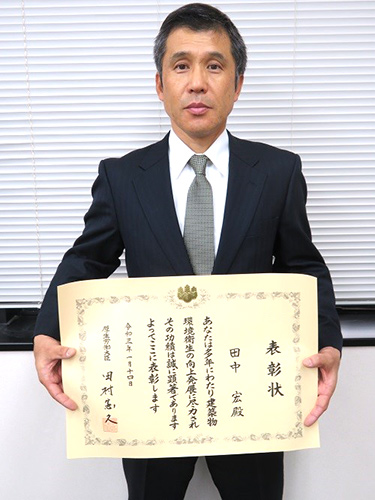 表彰状
田中 宏殿
あなたは多年にわたり建築物
環境衛生の向上発展に尽力され
その功績は誠に顕著であります
よってここに表彰します
令和三年一月二十四日
厚生労働大臣
田村憲久